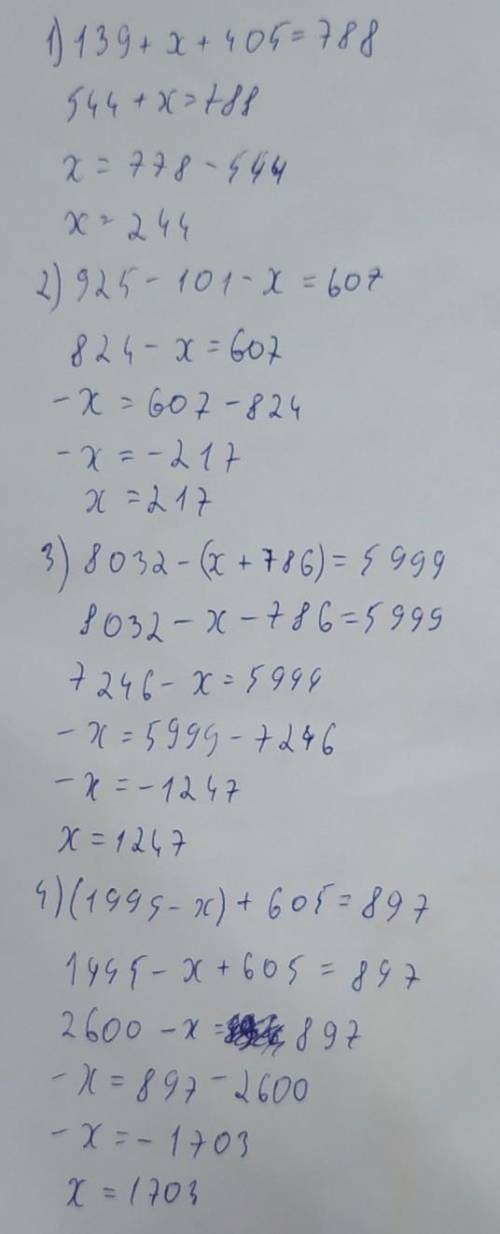 1) 139 + x + 405 = 788
544 + x = 788
x = 778 - 544
x = 244
2) 925 - 101 - x = 607
824 - x = 607
-x = 607 - 824
-x = -217
x = 217
3) 8032 - (x + 786) = 5999
8032 - x - 786 = 5999
7246 - x = 5999
-x = 5999 - 7246
-x = -1247
x = 1247
4) (1995 - x) + 605 = 897
1995 - x + 605 = 897
2600 - x = 897
-x = 897 - 2600
-x = -1703
x = 1703